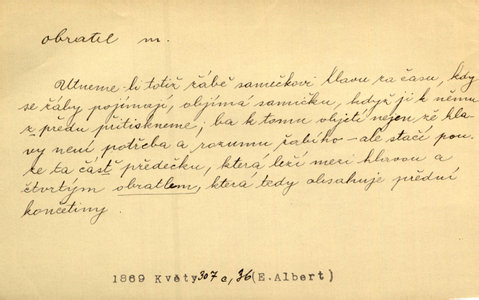 obratel m.
Utneme-li totiž žábě samečkovi hlavu za času, kdy
se žáby pojímají, objímá samičku, když ji k němu
z předu přitiskneme; ba k tomu objetí nejen že hla-
vy není potřeba a rozumu žabího – ale stačí pou-
ze ta část předečku, která leží mezi hlavou a
čtvrtým obratlem, která tedy obsahuje přední
končetiny.
1869 Květy 307 c, 36 (E. Albert)